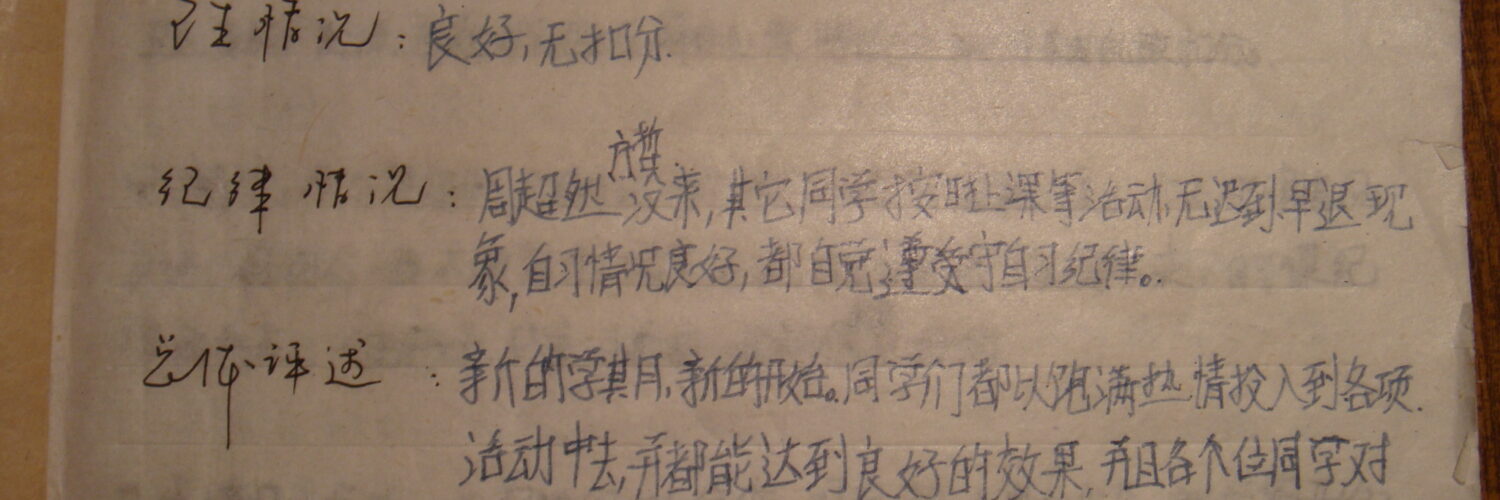 卫生情况：良好，无扣分.
纪律情况：周超然没来，其它同学按时上课等活动，无迟到早退现
象，自习情况良好，都自觉遵守自习纪律。
总体评述：新的学期，新的开始。同学们都以饱满热情投入到各项
活动中去，并都能达到良好的效果，并且各个位同学对